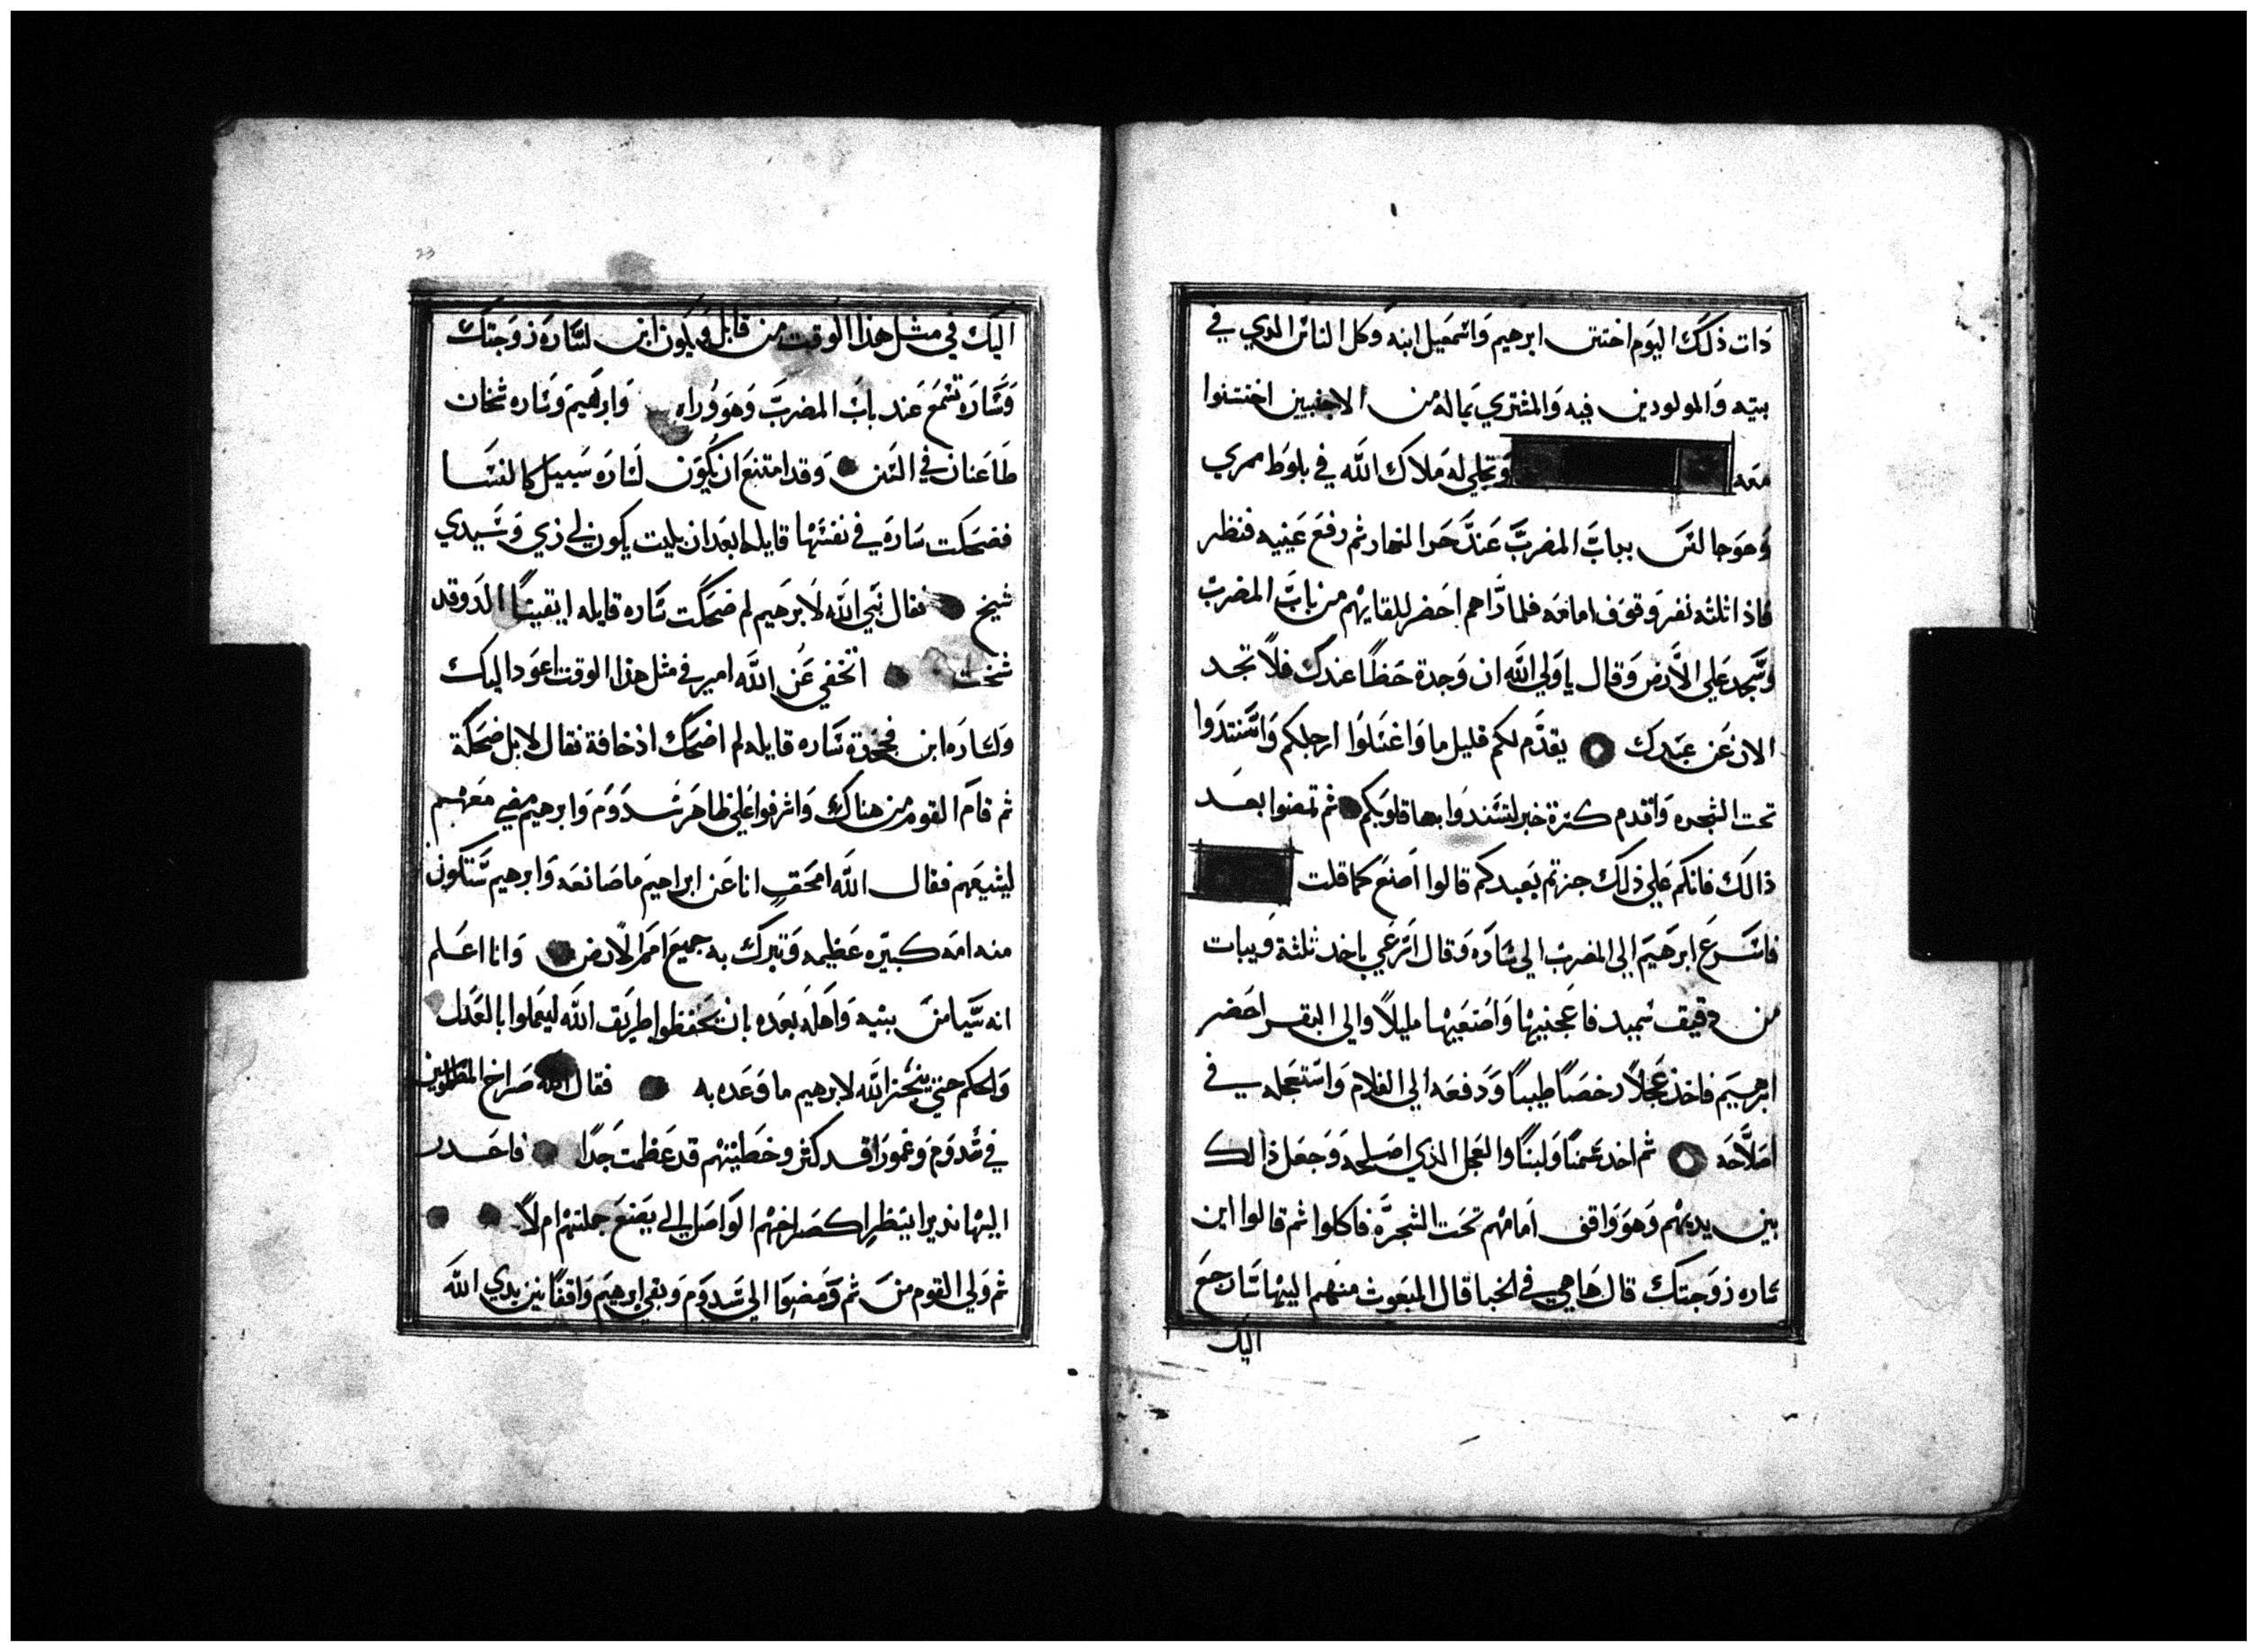 دات ذلك اليوم اختتن ابرهيم واسمعيل ابنه وكل الناس الدي في
بيته والمولودين فيه والمشتري بماله من الاجنبيين اختتنوا
معه وتجلي له ملاك الله في بلوط ممري
وهو جالس بباب المضرب عند حر النهار ثم رفع عينيه فنظر
فاذا ثلثه نفر وقوف امامه فلما راهم احضر للقايهم من باب المضرب
وسجد علي الارض وقال يا ولي الله ان وجدة حظا عندك فلا تجد
الان عن عبدك يقدم لكم قليل ما واغسلوا ارجلكم واستندوا
تحت الشجره واقدم كسرة خبز لتسندوا بها قلوبكم ثم تمضوا بعد
ذالك فانكم علي ذلك جزتم بعبدكم قالوا اصنع كما قلت
فاسرع ابرهيم الي المضرب الي ساره وقال اسرعي باخد ثلثة ويبات
من دقيق سميد فاعجنيها واصنعيها مليلا والي البقر احضر
ابرهيم فاخذ عجلا رخصا طيبا ودفعه الي الغلام واستعجله في
اصلاحه ثم اخد سمنا ولبنا والعجل الذي اصلحه وجعل ذالك
بين يديهم وهو واقف امامهم تحت الشجره فاكلوا ثم قالوا اين
ساره زوجتك قال ها هي في الخبا قال المبعوث منهم اليها سارجع
اليك
23
اليك في مثل هذا الوقت من قابل ويكون ابن لساره زوجتك
وساره تسمع عند باب المضرب وهو وراه وابرهيم وساره شخان
طاعنان في السن وقد امتنع ان يكون لساره سبيل كالنسا
فضحكت ساره في نفسها قايله ابعد ان بليت يكون لي زي وسيدي
شيخ فقال نبي الله لابرهيم لم ضحكت ساره قايله ايقينا الد وقد
شخت اتخفي عن الله امير في مثل هذا الوقت اعود اليك
ولساره ابن فجحدة ساره قايله لم اضحك اذ خافة فقال لا بل ضحكة
ثم قام القوم من هناك واشرفوا علي ظاهر سدوم وابرهيم مضي معهم
ليشيعهم فقال الله امخف انا عن ابراهيم ما صانعه وابرهيم ستكون
منه امه كبيره عظيمه وتبرك به جميع امم الارض وانا اعلم
انه سيامن بيته واهله بعده بان يحفظوا طريق الله ليعملوا بالعدل
والحكم حتي ينجز الله لابرهيم ما وعده به فقال الله صراخ المظلومين
في سدوم وغمورا قد كثر وخطيتهم قد عظمت جدا فاحدر
اليها نديرا ينظر اكصراخهم الواصل الي يصنع جملتهم ام لا
ثم ولي القوم من ثم ومضوا الي سدوم وبقي ابرهيم واقفا بين يدي الله